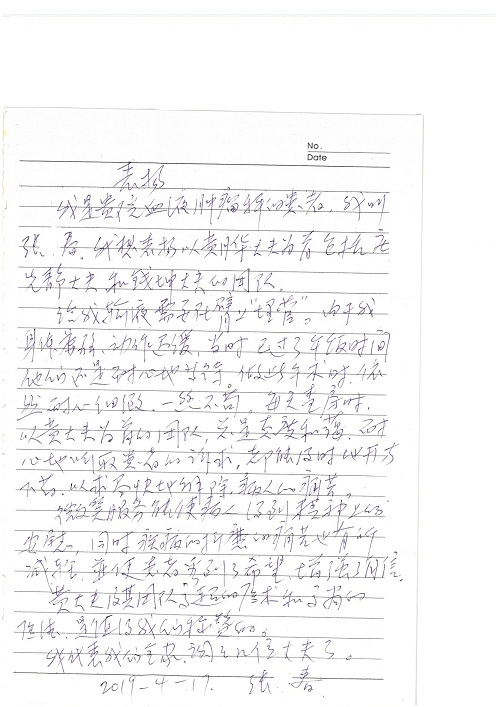 No.
Date
表扬
我是贵院血液肿瘤科的患者，我叫
张 春。我想表扬以黄 华大夫为首包括
静大夫和钱坤大夫的团队。
给我输液需要在臂上“埋管”。由于我
身体 动作迟缓，当时已过了午饭时间
他们还是耐心地 等。做 术时，依
然耐心细致，一丝不苟。每天查房时，
以黄大夫为首的团队，总是 和蔼，耐
心地听取患者的诉求，都能及时地开方
下药，以求尽快地解除病人的痛苦。
微笑服务能使病人得到精神上的
安慰，同时疾病的折磨的痛苦也有所
减轻，并使患者看到了希望，增强了自信。
黄大夫及其团队 的医术和高尚的
医德，是值得我们称赞的。
我代表我的全家，谢谢 大夫了。
2019-4-17. 张 春